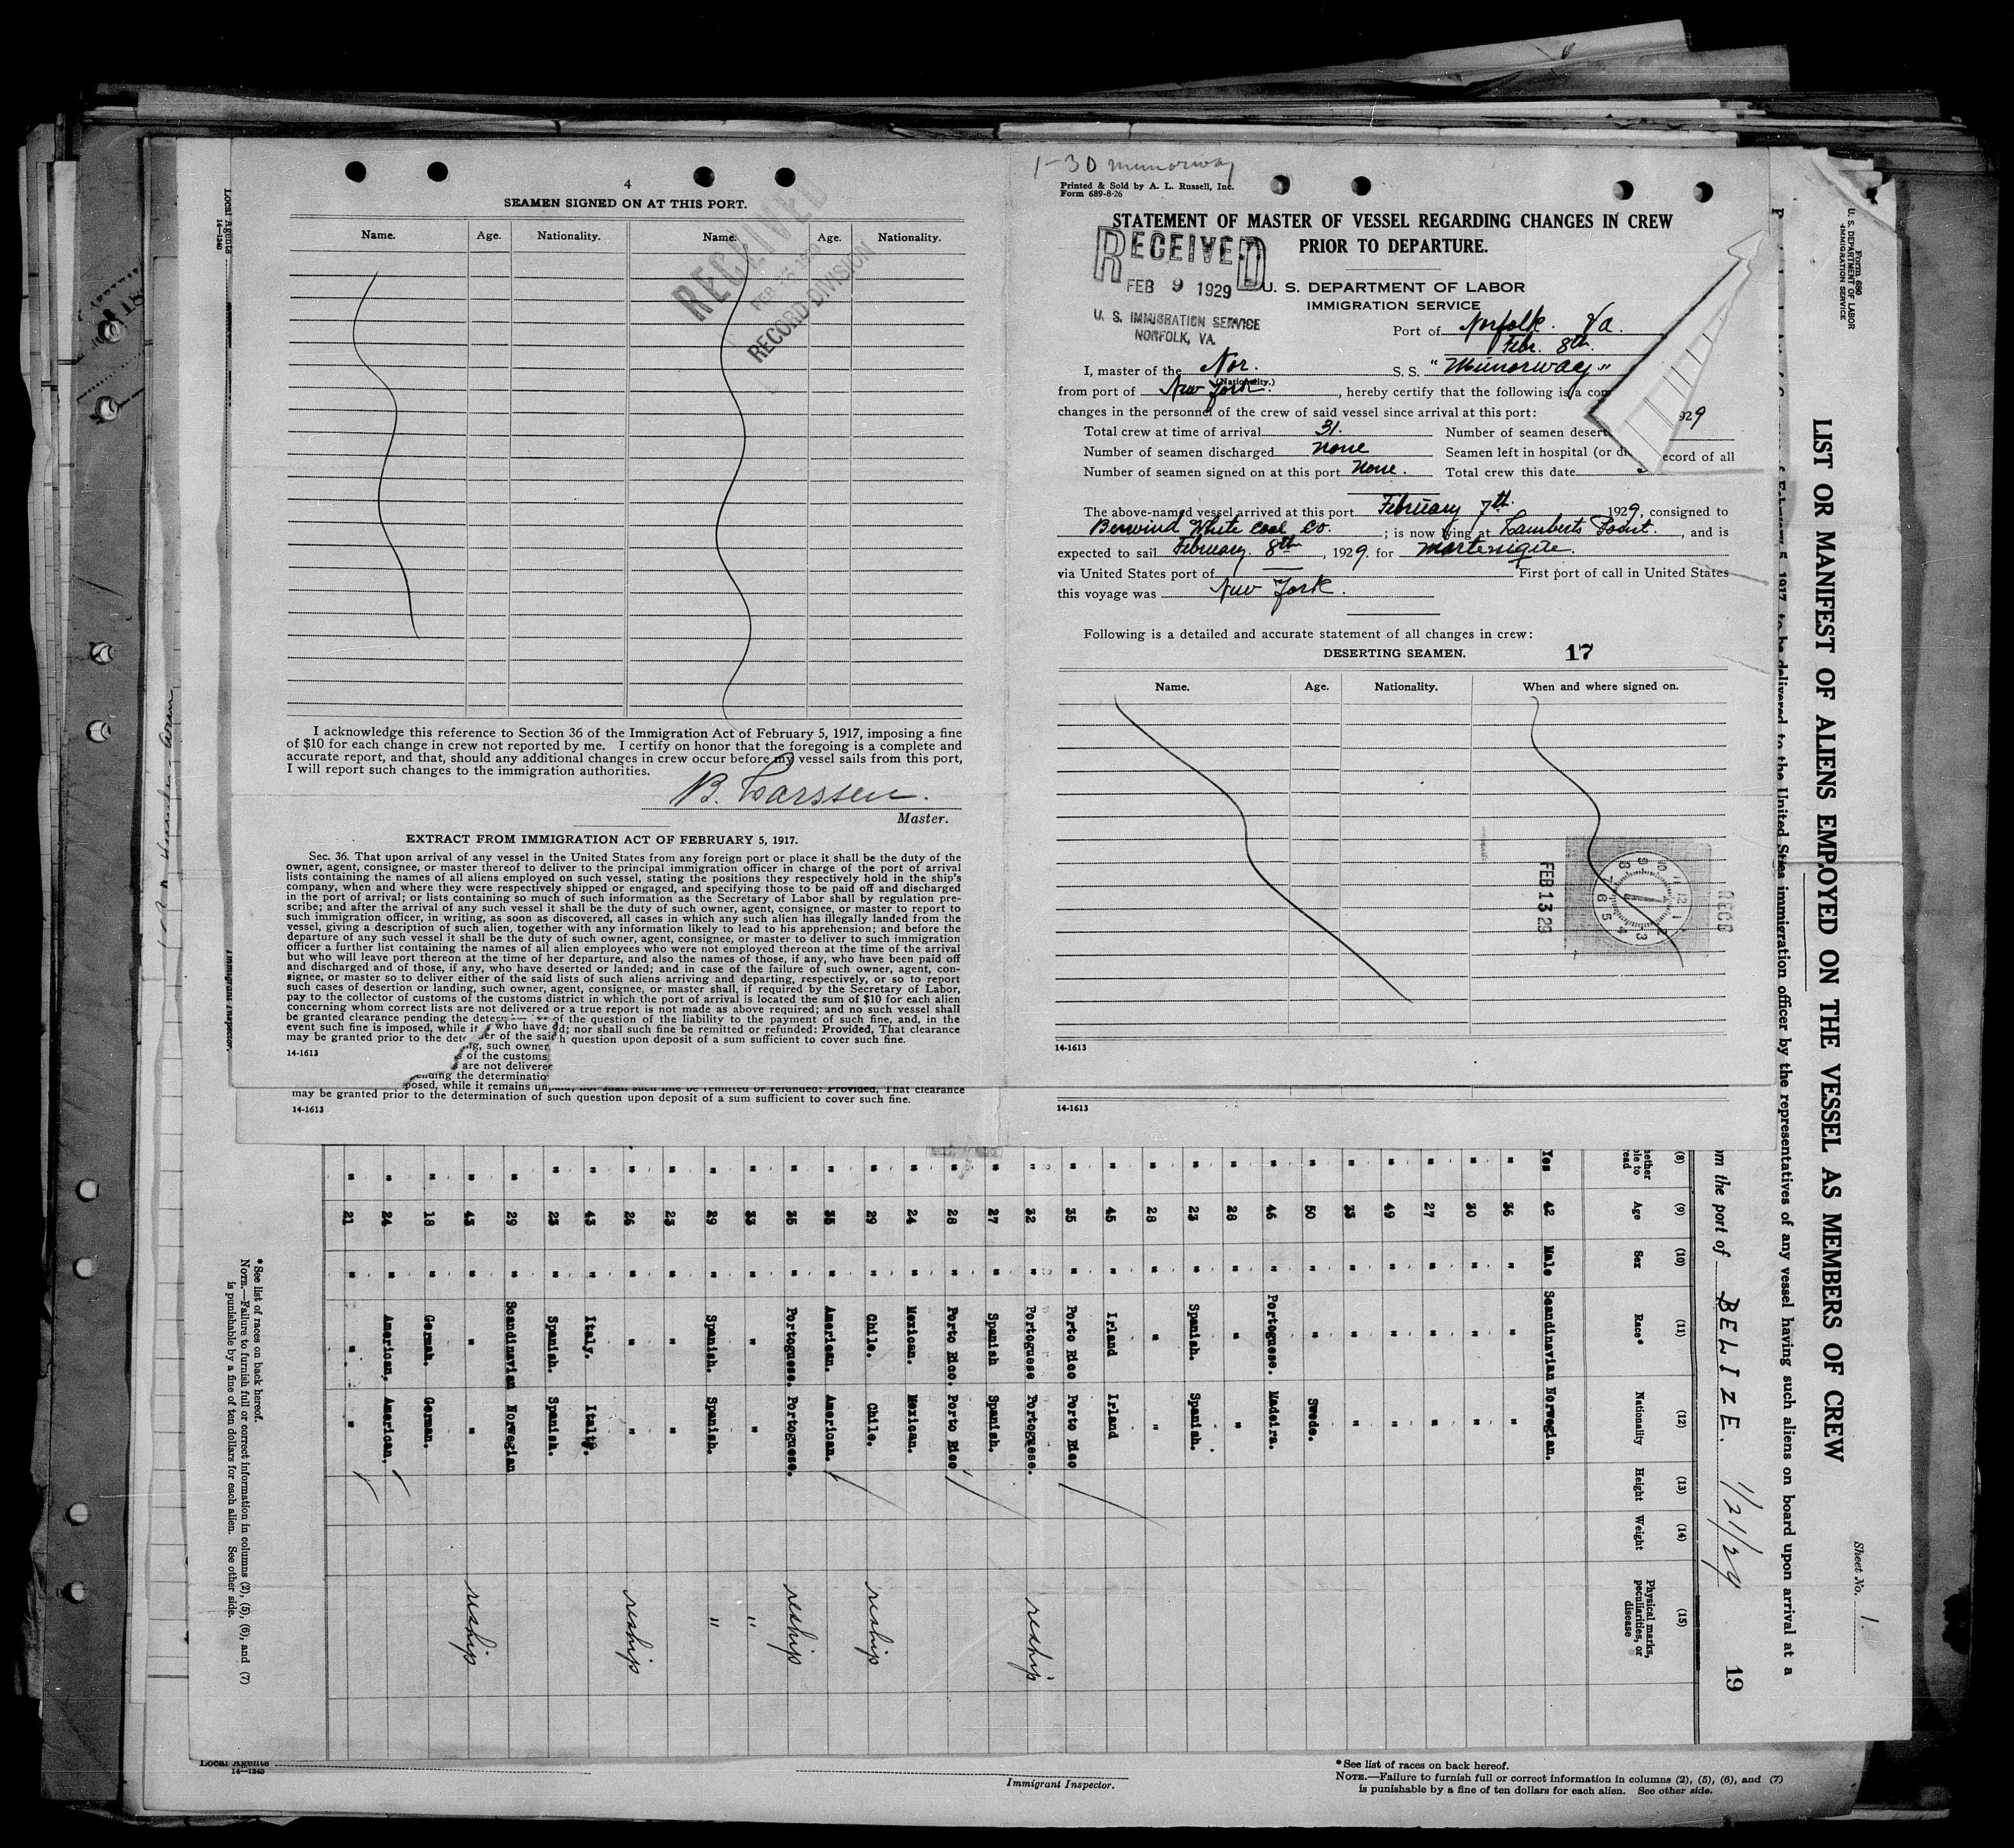 4
SEAMEN SIGNED ON AT THIS PORT.
Name. Age. Nationality. Name. Age. Nationality.
RECEIVED
FEB 1929
RECORD DIVISION
I acknowledge this reference to Section 36 of the Immigration Act of February 5, 1917, imposing a fine
of $10 for each change in crew not reported by me. I certify on honor that the foregoing is a complete and
accurate report, and that, should any additional changes in crew occur before my vessel sails from this port,
I will report such changes to the immigration authorities.
B. Larssen.
Master.
EXTRACT FROM IMMIGRATION ACT OF FEBRUARY 5, 1917.
Sec. 36. That upon arrival of any vessel in the United States from any foreign port or place it shall be the duty of the
owner, agent, consignee, or master thereof to deliver to the principal immigration officer in charge of the port of arrival
lists containing the names of all aliens employed on such vessel, stating the positions they respectively hold in the ship's
company, when and where they were respectively shipped or engaged, and specifying those to be paid off and discharged
in the port of arrival; or lists containing so much of such information as the Secretary of Labor shall by regulation pre-
scribe; and after the arrival of any such vessel it shall be the duty of such owner, agent, consignee, or master to report to
such immigration officer, in writing, as soon as discovered, all cases in which any such alien has illegally landed from the
vessel, giving a description of such alien, together with any information likely to lead to his apprehension; and before the
departure of any such vessel it shall be the duty of such owner, agent, consignee, or master to deliver to such immigration
officer a further list containing the names of all alien employees who were not employed thereon at the time of the arrival
but who will leave port thereon at the time of her departure, and also the names of those, if any, who have been paid off
and discharged and of those, if any, who have deserted or landed; and in case of the failure of such owner, agent, con-
signee, or master so to deliver either of the said lists of such aliens arriving and departing, respectively, or so to report
such cases of desertion or landing, such owner, agent, consignee, or master shall, if required by the Secretary of Labor,
pay to the collector of customs of the customs district in which the port of arrival is located the sum of $10 for each alien
concerning whom correct lists are not delivered or a true report is not made as above required; and no such vessel shall
be granted clearance pending the of the question of the liability to the payment of such fine, and, in the
event such fine is imposed, while it who have d; nor shall such fine be remitted or refunded: Provided, That clearance
may be granted prior to the dete er of the said h question upon deposit of a sum sufficient to cover such fine.
14-1613
ng, such owner
s of the customs
are not delivered
ending the determinatio
posed, while it remains unpaid, nor shall such fine be remitted or refunded: Provided, That clearance
may be granted prior to the determination of such question upon deposit of a sum sufficient to cover such fine.
14-1613
1-30 Munorway
Printed & Sold by A. L. Russell, Inc.
Form 689-8-26
STATEMENT OF MASTER OF VESSEL REGARDING CHANGES IN CREW
PRIOR TO DEPARTURE.
RECEIVED
FEB 9 1929
U. S. IMMIGRATION SERVICE
NORFOLK, VA.
U. S. DEPARTMENT OF LABOR
IMMIGRATION SERVICE
Port of Norfolk. Va.
Febr. 8th.
I, master of the Nor. S. S. "Munorway"
(Nationality.)
from port of New York., hereby certify that the following is a com
929
changes in the personnel of the crew of said vessel since arrival at this port:
Total crew at time of arrival 31. Number of seamen desert
Number of seamen discharged none Seamen left in hospital (or di ecord of all
Number of seamen signed on at this port None. Total crew this date
The above-named vessel arrived at this port February 7th 1929, consigned to
Berwind White Coal Co. ; is now lying at Lamberts Point., and is
expected to sail February. 8th, 1929. for Martenique.
via United States port of First port of call in United States
this voyage was New York.
Following is a detailed and accurate statement of all changes in crew:
DESERTING SEAMEN. 17
Name. Age. Nationality. When and where signed on.
REC'D
12 1 2 3 4 5 6 7 8 9 10 11
FEB 13 29
14-1613
14-1613
Form 680
U. S. DEPARTMENT OF LABOR
IMMIGRATION SERVICE
Sheet No. 1.
LIST OR MANIFEST OF ALIENS EMPLOYED ON THE VESSEL AS MEMBERS OF CREW
1917, to be delivered to the United States immigration officer by the representatives of any vessel having such aliens on board upon arrival at a
om the port of BELIZE. 1/21/29 19
(8) (9) (10) (11) (12) (13) (14) (15)
hether ble to read Age Sex Race* Nationality Height Weight Physical marks, peculiarities, or disease
Yes 42 Male Scandinavian Norwegian.
" 36 " " "
" 30 " " "
" 27 " " "
" 49 " " "
" 33 " " "
" 50 " " Swede.
" 46 " Portoguese. Madeira.
" 28 " " "
" 23 " Spanish. Spanish.
" 28 " " "
" 45 " Irland Irland
" 35 " Porto Rico Porto Rico
" 32 " Portoguese Portoguese. reship
" 27 " Spanish Spanish.
" 28 " Porto Rico. Porto Rico
" 24 " Mexican. Mexican.
" 29 " Chile. Chile. reship
" 35 " American. American.
" 35 " Portoguese. Portoguese. reship
" 33 " " " "
" 29 " Spanish. Spanish. "
" 23 " " "
" 26 " " " reship
" 43 " Italy. Italy.
" 23 " Spanish. Spanish.
" 29 " Scandinavian Norwegian
" 43 " " " reship
" 18 " German. German.
" 24 " American, American,
" 21 " " "
*See list of races on back hereof.
NOTE.—Failure to furnish full or correct information in columns (2), (5), (6), and (7)
is punishable by a fine of ten dollars for each alien. See other side.
Local Agents
14-1240
Immigrant Inspector.
Local Agents
14-1240
Immigrant Inspector.
*See list of races on back hereof.
NOTE.—Failure to furnish full or correct information in columns (2), (5), (6), and (7)
is punishable by a fine of ten dollars for each alien. See other side.